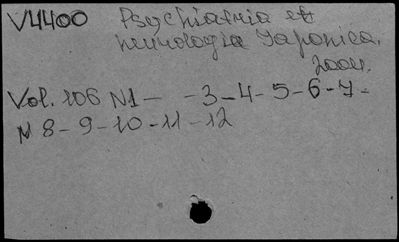 V4400 Psychiatria et
neurologia Japonica.
2004.
Vol. 106 N1 - -3-4-5-6-7-
N 8-9-10-11-12